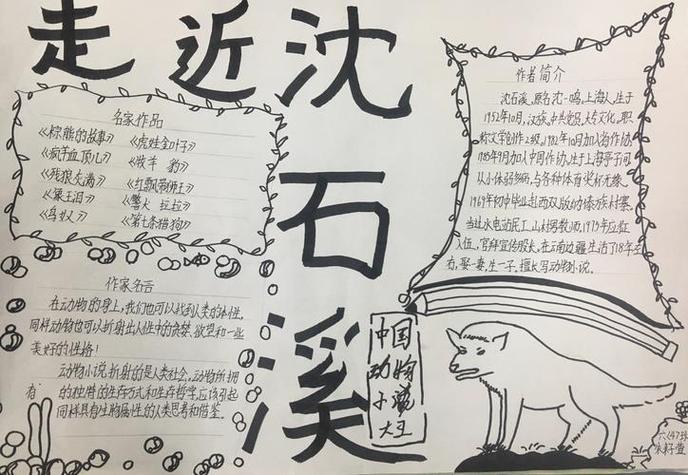 走近沈石溪
名家作品
《棕熊的故事》《虎娃金叶子》
《疯羊血顶儿》《牧羊豹》
《残狼灰满》《红飘带狮王》
《象王泪》《警犬拉拉》
《鸟奴》《第七条猎狗》
作家名言
在动物的身上,我们也可以找到人类的个性。
同样动物也可以折射出人性中的贪婪、欲望和一些
美好的性格!
动物小说折射的是人类社会,动物所拥
有的独特的生存方式和生存哲学,应该引起
同样具有生物属性的人类思考和借鉴。
作者简介
沈石溪,原名沈一鸣,上海人,生于
1952年10月,汉族,中共党员,大专文化。职
称文学创作2级。1982年10月加入省作协,
1985年9月加入中国作协。生于上海亭子间,
从小体弱多病,与各种体育奖杯无缘。
1969年初中毕业赴西双版纳傣族村寨。
当过水电站民工,山村男教师,1975年应征
入伍,官拜宣传股长。在云南边疆生活了18年
有,娶一妻,生一子,擅长写动物小说。
中国
动物
小说
大王
六(4)班